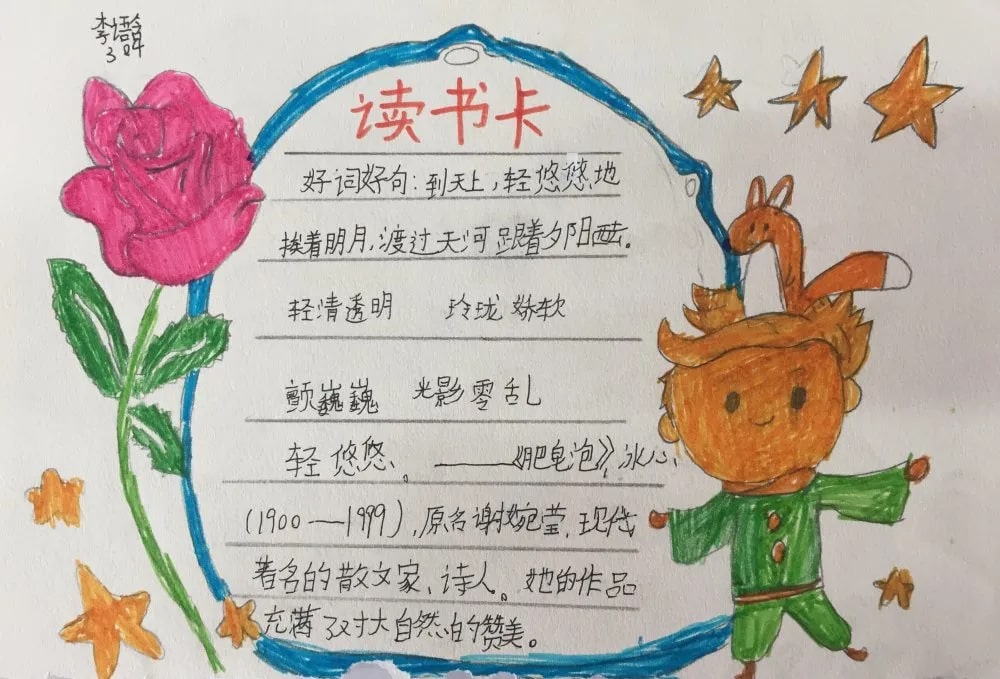 读书卡
好词好句:到天上,轻悠悠地
挨着明月,渡过天河跟着夕阳西去。
轻清透明 玲珑娇软
颤巍巍 光影零乱
轻悠悠。——《肥皂泡》,冰心、
(1900—1999),原名谢婉莹,现代
著名的散文家、诗人。她的作品
充满了对大自然的赞美。